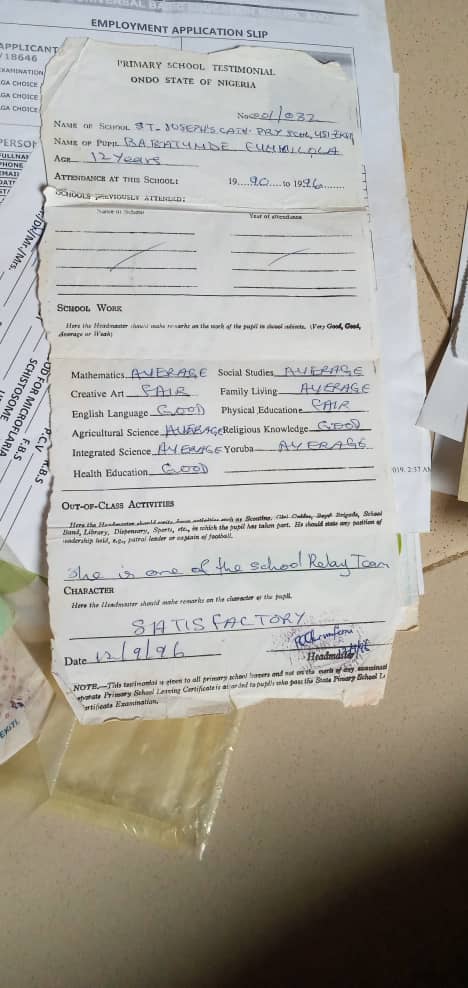 EMPLOYMENT APPLICATION SLIP
APPLICANT
/18646
EXAMINATION
LGA CHOICE
LGA CHOICE
LGA CHOICE
PERSO
FULLNA
PHONE
EMAI
DAT
/Dr/Mr./Mrs.
OD FOR MICROFILARIA
SCHISTOSOME
F.B.S
P.C.V
R.B.S
019. 2:37 AM
EKITI.
PRIMARY SCHOOL TESTIMONIAL
ONDO STATE OF NIGERIA
No 001/032
NAME OF SCHOOL ST. JOSEPH'S CATH. PRY SCH,
NAME OF PUPIL BABATUNDE FUNMILOLA
AGE 12 Years
ATTENDANCE AT THIS SCHOOL: 19....90....to 1996.......
SCHOOLS PREVIOUSLY ATTENDED:
Name of School Year of attendance
SCHOOL WORK
Here the Headmaster should make remarks on the work of the pupil in school subjects. (Very Good, Good,
Average or Weak)
Mathematics AVERAGE Social Studies AVERAGE
Creative Art FAIR Family Living AVERAGE
English Language GOOD Physical Education FAIR
Agricultural Science AVERAGE Religious Knowledge GOOD
Integrated Science AVERAGE Yoruba AVERAGE
Health Education GOOD
OUT-OF-CLASS ACTIVITIES
Here the Headmaster should write down activities such as Scouting, Girl Guides, Boys' Brigade, School
Band, Library, Dispensary, Sports, etc., in which the pupil has taken part. He should state any position of
leadership held, e.g., patrol leader or captain of football.
She is one of the school Relay Team
CHARACTER
Here the Headmaster should make remarks on the character of the pupil.
SATISFACTORY
Date 12/9/96
Headmaster
NOTE.—This testimonial is given to all primary school leavers and not on the merit of any examinat
eparate Primary School Leaving Certificate is awarded to pupils who pass the State Primary School Le
ertificate Examination.